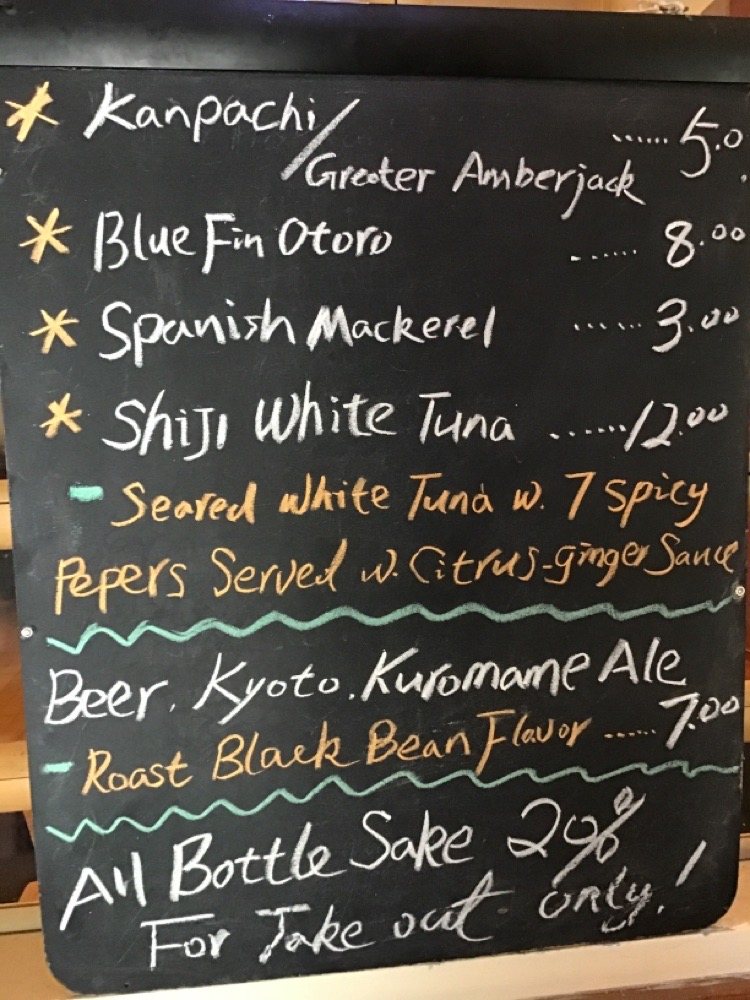 * Kanpachi/
Greater Amberjack ...... 5.0
* Blue Fin Otoro ...... 8.00
* Spanish Mackerel ...... 3.00
* Shiji White Tuna ...... 12.00
- Seared White Tuna w. 7 Spicy
Pepers Served w. Citrus-ginger Sauce
Beer. Kyoto. Kuromame Ale
- Roast Black Bean Flavor ...... 7.00
All Bottle Sake 20%
For Take out only!